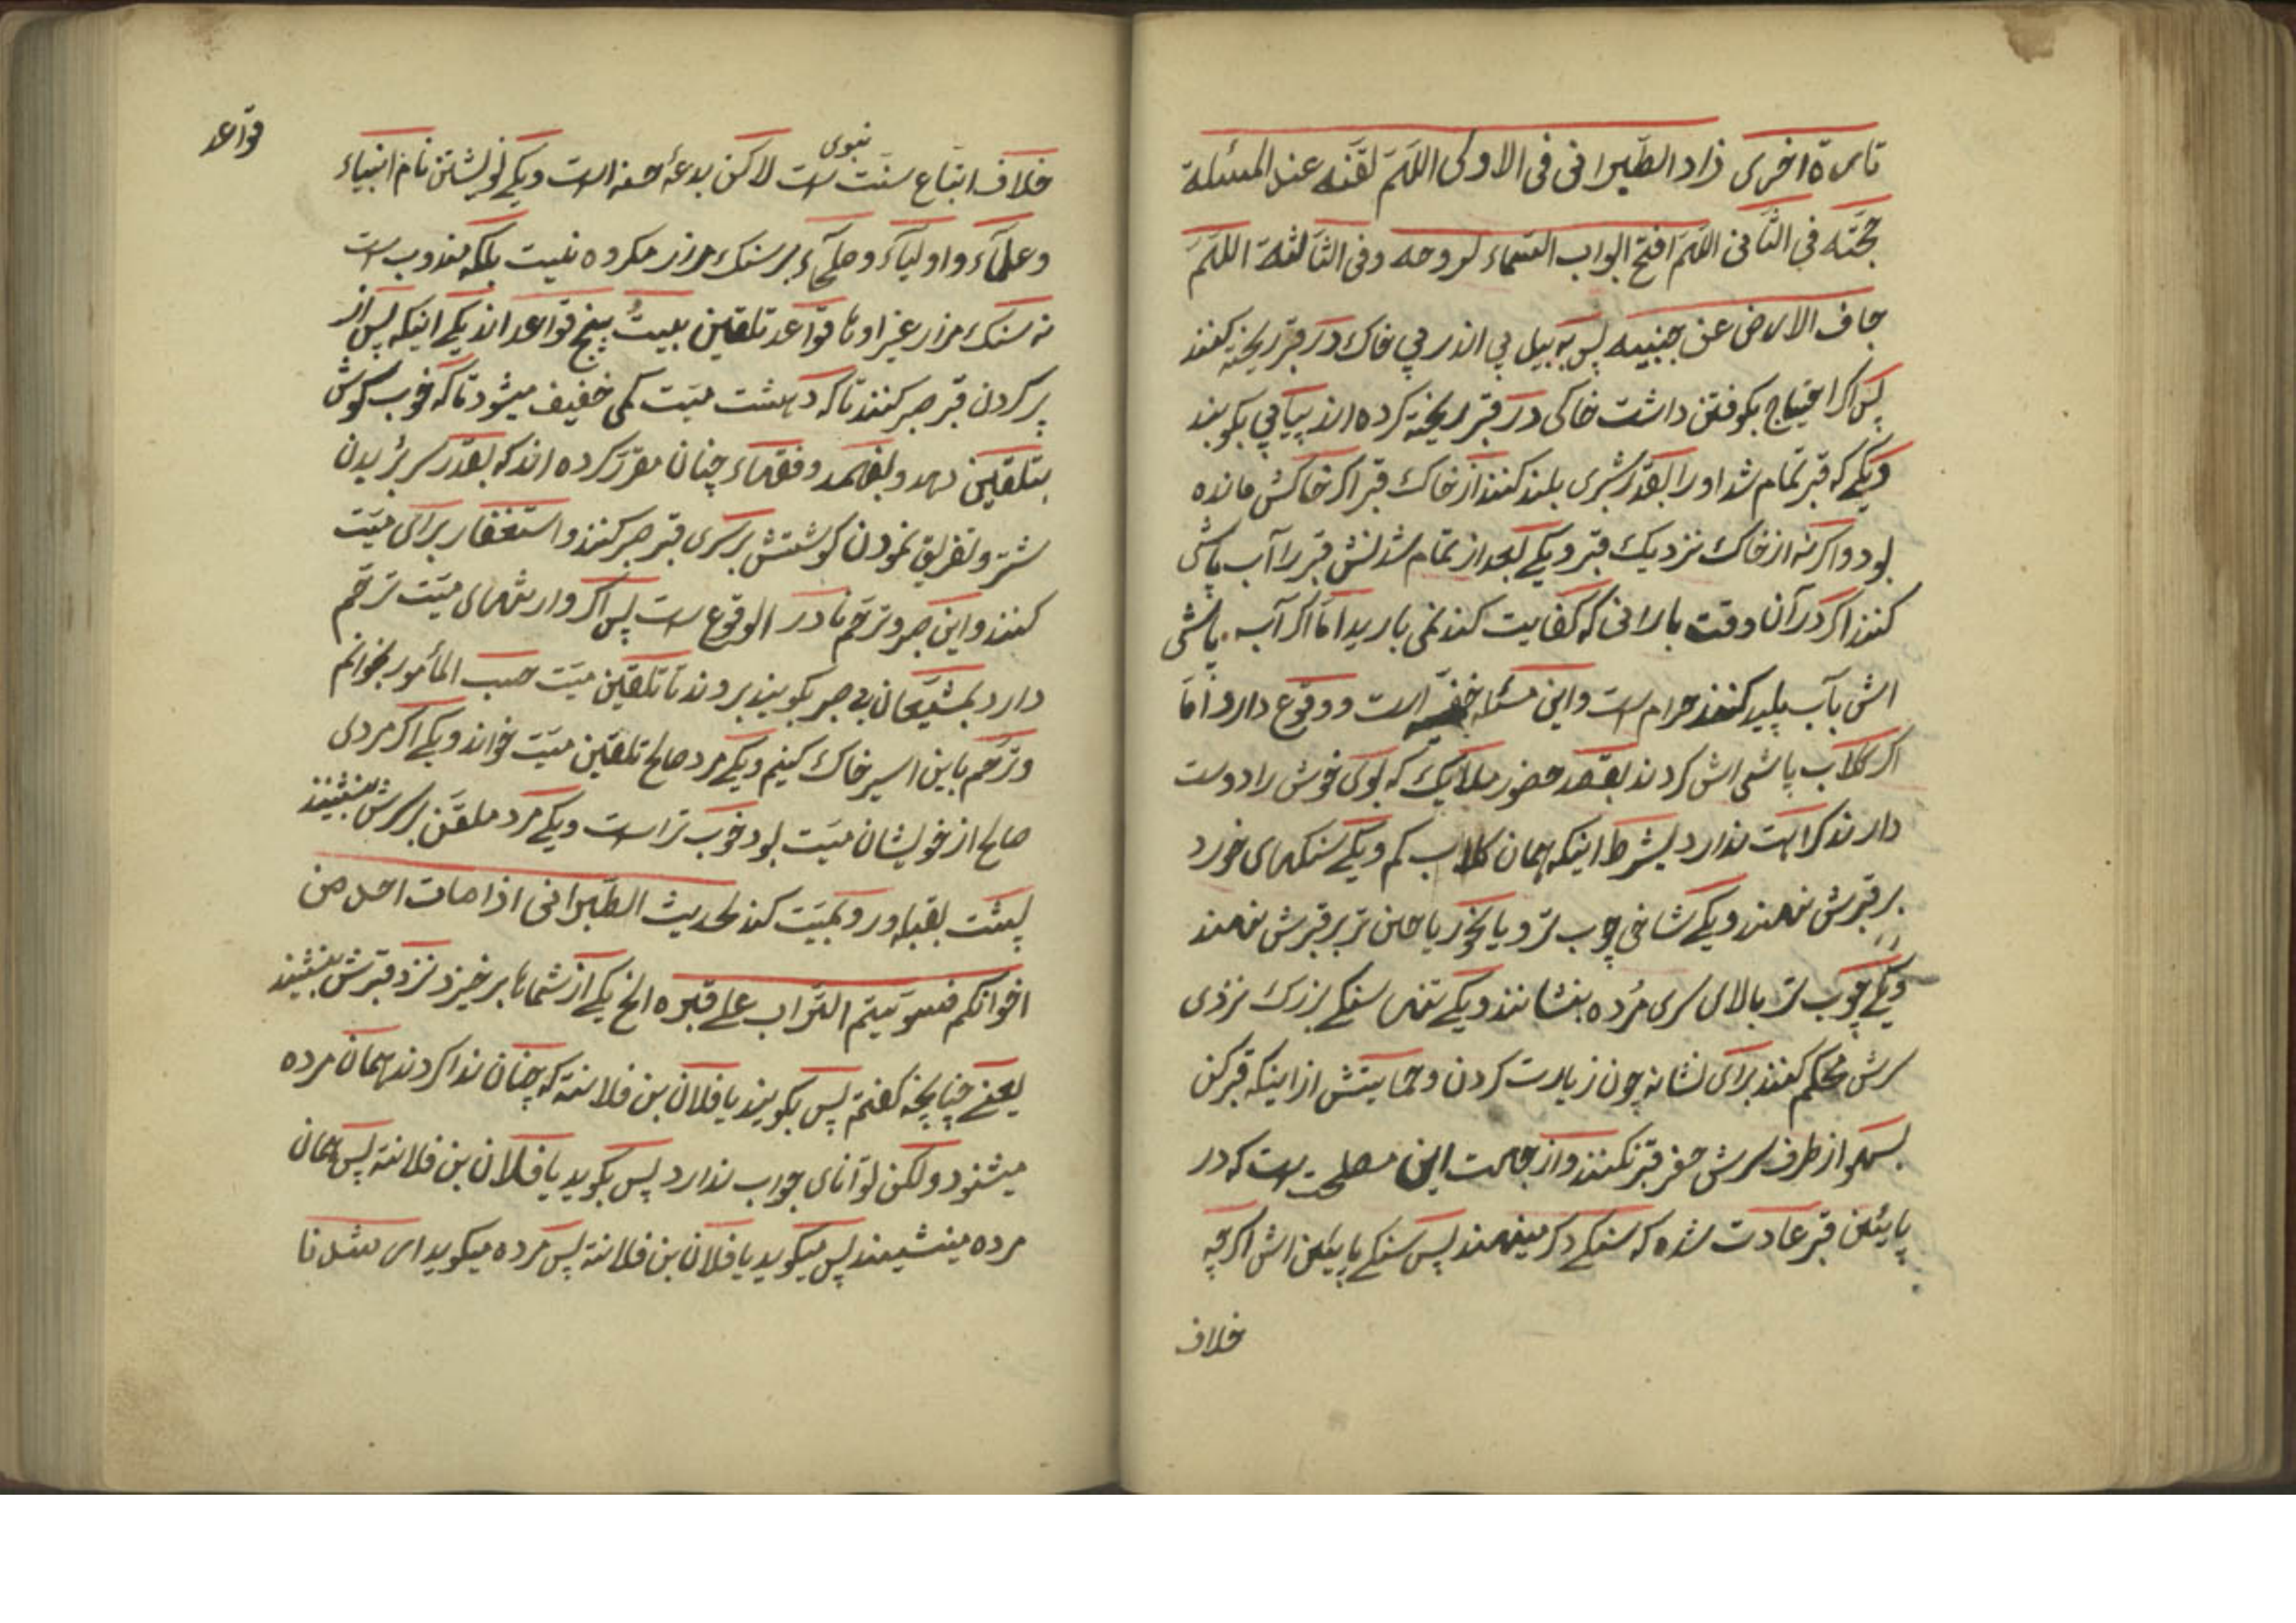 تارة اخری زاد الطّبرانی فی الاولی اللّهمّ لقّنه عند المسئلة
حجّته فی الثّانی اللّهمّ افتح ابواب السّماء لروحه وفی الثّالثة اللّهمّ
جاف الارض عن جنبیه پس به بیل پی اندر پی خاک در قبر ریخته کنند
پس اکر احتیاج بکوفتن داشت خاکی در قبر ریخته کرده اند پیاپی بکوبند
ویکے که قبر تمام شد او را بقدر شبری بلند کنند از خاک قبر اکر خاکش مانده
بود واکر نه از خاک نزدیک قبر ویکے بعد از تمام شدنش قبر را آب پاشی
کنند اکر در آن وقت بارانی که کفایت کند نمی بارید امّا اکر آب پاشی
اش بآب پلید کنند حرام است واین مسئله خفیّه است ووقوع دارد امّا
اکر کلاب پاشی اش کردند بقصد حضور ملایک که بوی خوش را دوست
دارند کراهت ندارد بشرط اینکه همان کلاب کم ویکے سنکهای خورد
بر قبرش نهند ویکے شاخی چوب تر ویا نحو ریاحین تر بر قبرش نهند
ویکے چوب تر بالای سری مرده بنشانند ویکے سنکے بزرک نزدی
سرش محکم کنند برای نشانه چون زیارت کردن وحمایتش از اینکه قبر کن
بسهو از طرف سرش حفر قبر نکنند واز جهت این مصلحت است که در
پایین قبر عادت شده که سنکے دکر مینهند پس سنکے پایین اش اکرچه
خلاف
خلاف اتباع سنّت نبوی است لاکن بدعهٔ حسنه است ویکے نویشتن نام انبیاء
وعلمآء واولیآء وصلحآء بر سنک مزار مکروه نیست بلکه مندوب است
نه سنک مزار غیر اوها قواعد تلقین بمیّت پنج قواعد اند یکے اینکه پس از
پر کردن قبر صبر کنند تا که دهشت میّت کمی خفیف میشود تا که خوب کوش
بتلقین نهد وبفهمد وفقهاء چنان مقرّر کرده اند که بقدر سر بریدن
شتر وتفریق نمودن کوشتش بر سری قبر صبر کنند واستغفار برای میّت
کنند واین صبر وترحّم نادر الوقوع است پس اکر وارشهای میّت ترحّم
دارد بمشیّعان بی صبر بکویند بروند تا تلقین میّت حسب المأمور بخوانم
وترحّم باین اسیر خاک کنیم ویکے مرد صالح تلقین میّت خواند ویکے اکر مردی
صالح از خویشان میّت بود خوب تر است ویکے مرد ملقّن بر سرش بنشیند
پشت بقبله ورو بمیّت کند لحدیث الطّبرانی اذا مات احد من
اخوانکم فسوّیتم التّراب علے قبره الخ یکے از شماها بر خیزد نزد قبرش بنشیند
یعنے چنانچه کفتم پس بکویند یا فلان بن فلانة که چنان ندا کردند همان مرده
میشنود ولکن توانای جواب ندارد پس بکوید یا فلان بن فلانة پس همان
مرده مینشیند پس میکوید یا فلان بن فلانة پس مرده میکوید ارشدنا
قواعد